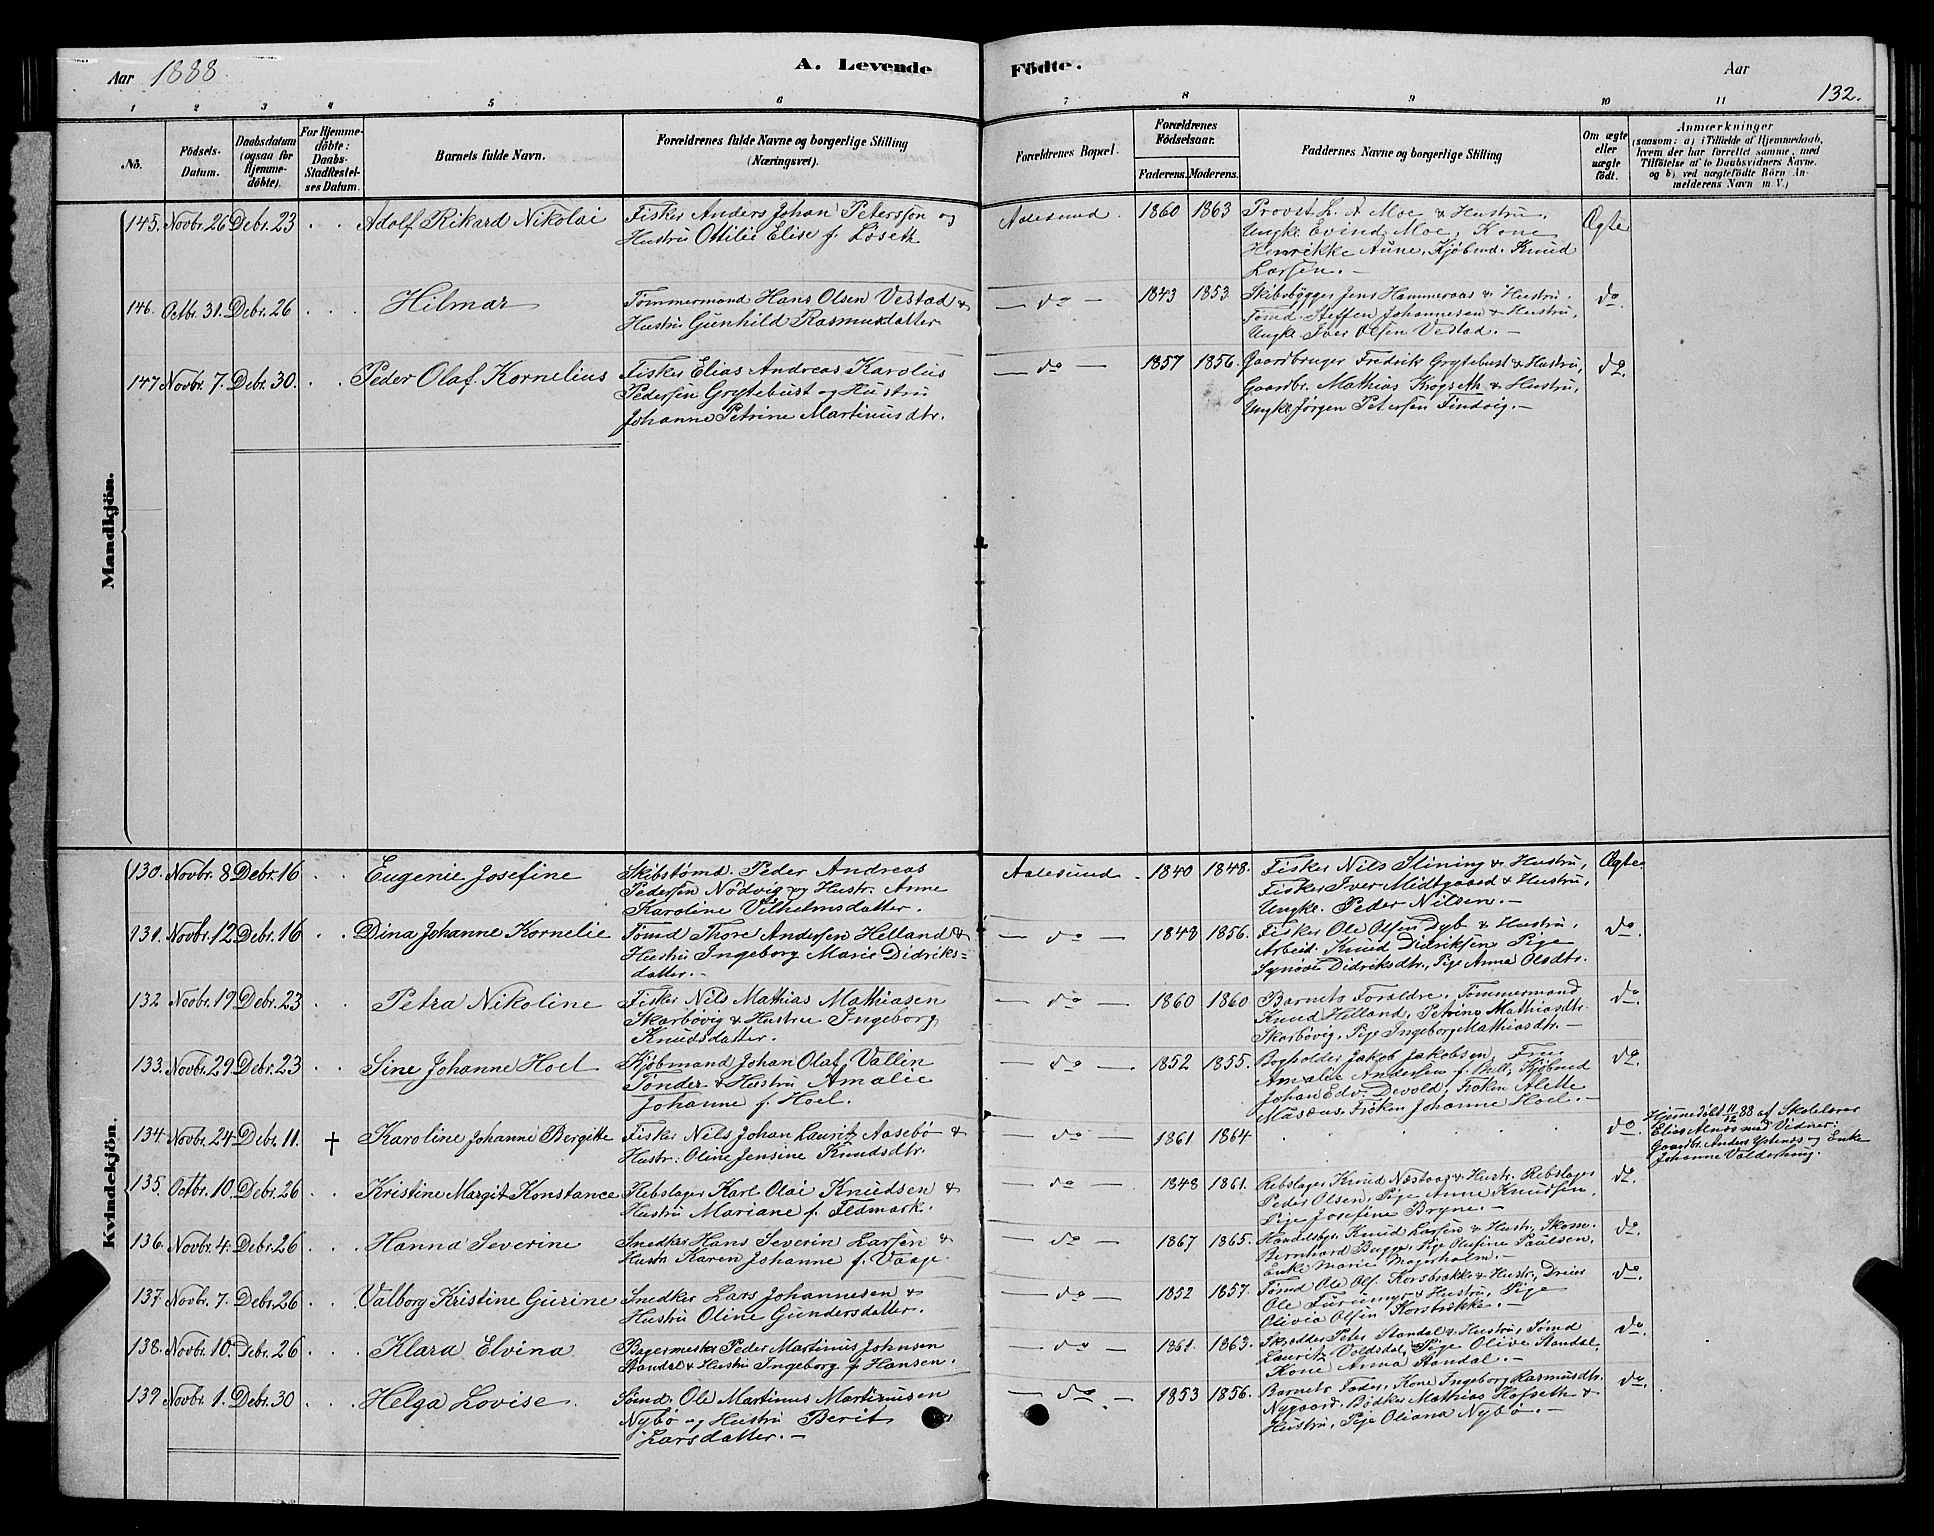 Aar 1888. A. Levende Födte. Aar
132.
1 2 3 4 5 6 7 8 9 10 11
No. Födsels-Datum. Daabsdatum (ogsaa for Hjemmedöbte). For Hjemmedöbte: Daabs-Stadfæstelses Datum. Barnets fulde Navn. Forældrenes fulde Navne og borgerlige Stilling (Næringsvei). Forældrenes Bopæl. Forældrenes Födselsaar. Faderens. Moderens. Faddernes Navne og borgerlige Stilling Om ægte eller uægte födt. Anmærkninger (saasom: a) i Tilfælde af Hjemmedaab, hvem der har forrettet samme, med Tilföielse af to Daabsvidners Navne. og b) ved uægtefödte Börn Anmelderens Navn m. V.)
Mandkjön.
145. Novbr. 26 Debr. 23 Adolf Rikard Nikolai Fisker Anders Johan Peterssen og Aalesund. 1860 1863 Provst L. A. Moe & Hustru, Ægte
Hustru Ottilie Elise f. Löseth Ungk. Evind Moe, Kone
Henrikke Aune, Kjöbmd. Knud
Larsen. —
146. Octbr. 31. Debr. 26 Hilmar Tömmermand Hans Olsen Vestad & — do — 1843 1853. Skibsbygger Jens Hammeraas & Hustru, do.
Hustru Gunhild Rasmusdatter Tömd. Steffen Johannesen & Hustru,
Ungk. Iver Olsen Vestad. —
147 Novbr. 7. Debr. 30. Peder Olaf Kornelius Fisker Elias Andreas Karolus — do — 1857 1856. Gaardbruger Fredrik Grytebust & Hustru, do.
Pedersen Grytebust og Hustru Gaardbr. Mathias Krogseth & Hustru,
Johanne Petrine Martinusdtr. Ungk. Jörgen Petersen Findvig. —
Kvindekjön.
130. Novbr. 8 Debr. 16 Eugenie Josefine Skibstömd. Peder Andreas Aalesund. 1840 1848. Fisker Nils Slining & Hustru, Ægte
Pedersen Nödvig og Hustr. Anne Fisker Iver Midtgaard & Hustru,
Karoline Vilhelmsdatter. Ungk. Peder Nilsen. —
131. Novbr. 12 Debr. 16 Dina Johanne Kornelie Tömd Thore Andersen Helland & — do — 1848 1856. Fisker Ole Olsen Dyb & Hustru, do.
Hustru Ingeborg Marie Didriks= Arbeid. Knud Didriksen, Pige
datter. — Synöve Didriksdtr., Pige Anna Olsdtr.
132 Novbr. 19 Debr. 23 Petra Nikoline Fisker Nils Mathias Mathiasen — do — 1860 1860 Barnets Forældre, Tömmermand do.
Skarbövig & Hustru Ingeborg Knud Helland, Petrine Mathiasdtr.
Knudsdatter. Skarbövig, Pige Ingeborg Mathiasdtr. —
133. Novbr. 29 Debr. 23 Sine Johanne Hoel Kjöbmand Johan Olaf Vallin — do — 1852 1855. Bogholder Jakob Jakobsen, Fru do.
Tönder & Hustru Amalie Amalie Andersen f. Bull, Kjöbmd
Johanne f. Hoel. Johan Edv. Devold, Fröken Alette
Fröken Johanne Hoel. —
134 Novbr. 24 Debr. 11. † Karoline Johanne Bergitte Fisker Nils Johan Laurits Aasebö & — do — 1861 1864 do. Hjemmedöbt 11/12 88 af Skolelærer
Hustr: Oline Jensine Knudsdtr. Elias Alnæs med Vidner:
Gaardbr. Anders Ytternæs og Enke
Johanne Valderhaug.
135. Octbr. 10 Debr. 26 Kristine Margit Konstance Rebslager Karl Olai Knudsen & — do — 1848 1861. Rebslager Knud Næstvog & Hustr. Rebslager do.
Hustru Mariane f. Fldmark. Peder Olsen, Pige Anne Knudsen,
Pige Josefine Bryne. —
136. Novbr. 4. Debr. 26 Hanna Severine Snedker Hans Severin Larsen & — do — 1867 1865. Handelsbgt. Knud Larsen & Hustr. Skom. do.
Hustr. Karen Johanne f. Vaage Bernhard Bugge, Pige Olufine Paulsen,
Enke Marie Magerholm. —
137 Novbr. 7. Debr. 26 Valborg Kristine Gurine Snedker Lars Johannesen & — do — 1852 1857. Tömd Ole Ols. Korsbrekke & Hustr., Dreier do.
Hustru Oline Gundersdatter. Ole Furumyr & Hustru, Pige
Olivia Olsen Korsbrekke. —
138. Novbr. 10. Debr. 26 Klara Elvina Bagermester Peder Martinus Johnsen — do — 1861. 1863. Skrædder Peter Standal & Hustru, Tömd do.
Standal & Hustru Ingeborg f. Hansen. Laurits Voldsdal, Pige Olive Standal,
Kone Anna Standal. —
139 Novbr. 1. Debr. 30 Helga Lovise Tömd. Ole Martinus Martinusen — do — 1853 1856. Barnets Fader, Kone Ingeborg Rasmusdtr. do.
Nybö og Hustru Berit Nygaard, Bödker Mathias Hofseth &
Larsdatter. — Hustru, Pige Oliana Nybö. —